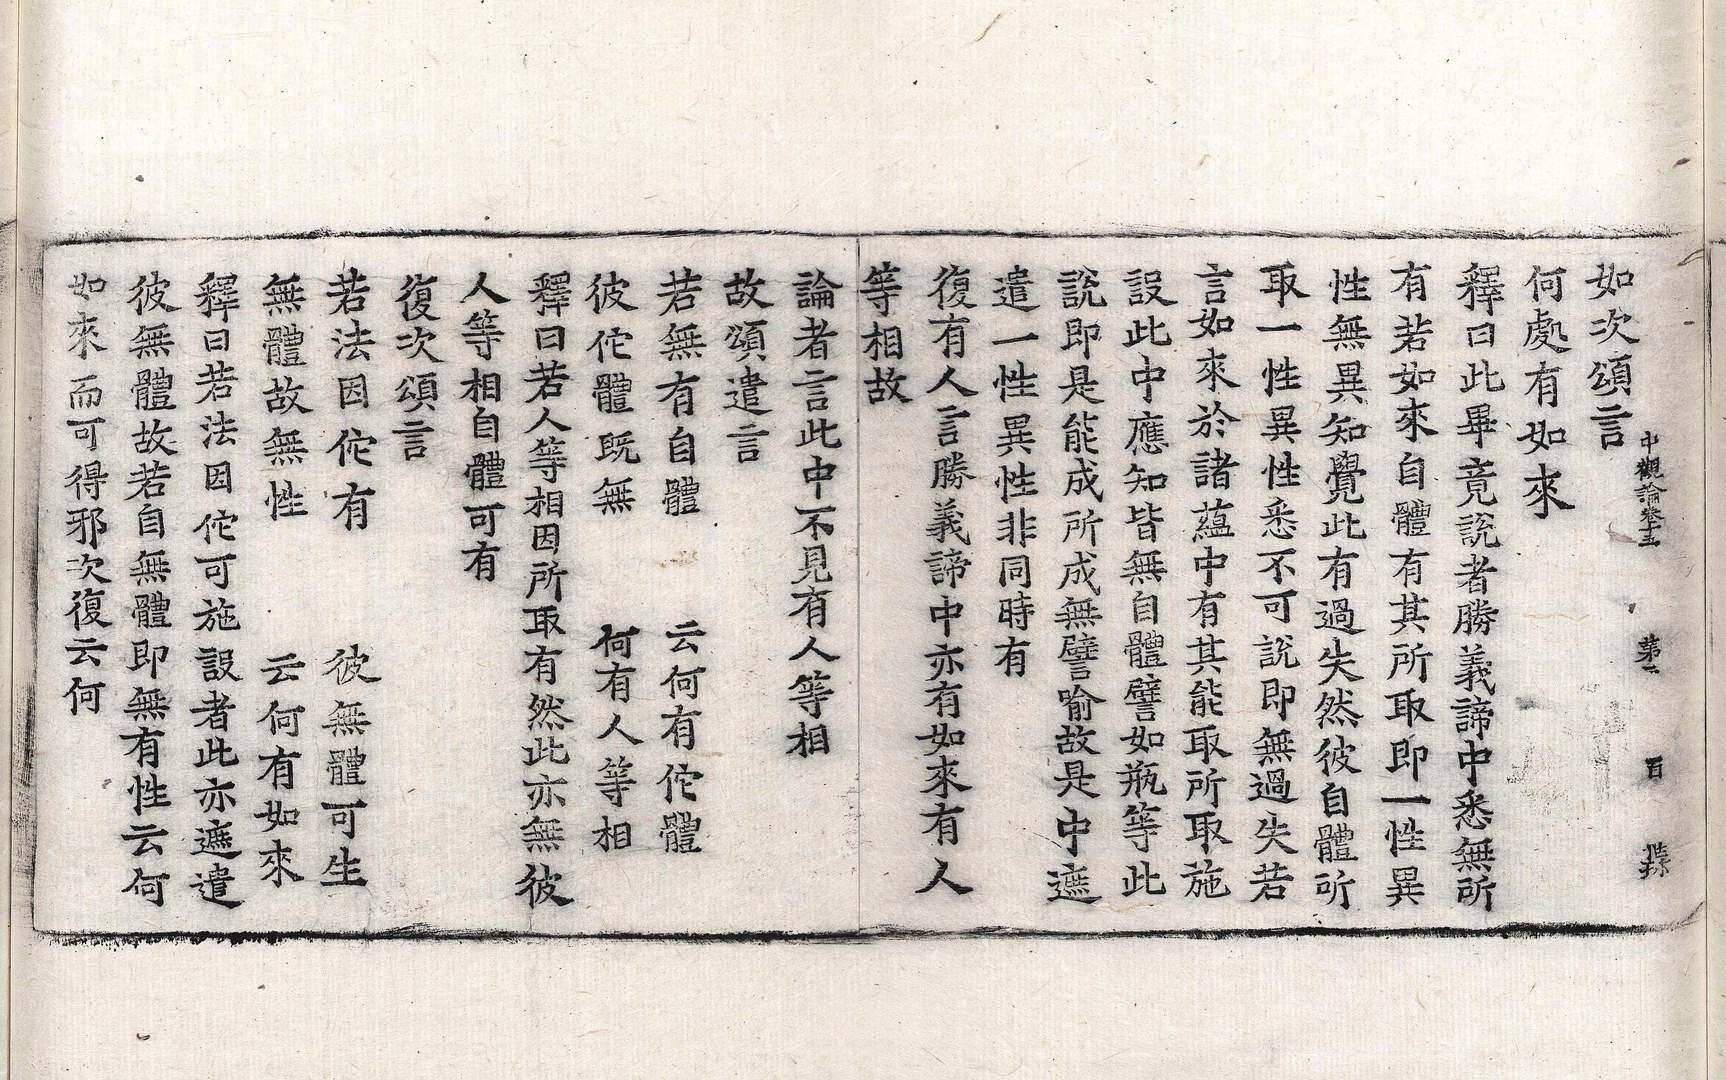 如次頌言
中觀論卷十五 第二 百
何處有如來
釋曰此畢竟說者勝義諦中悉無所
有若如來自體有其所取即一性異
性無異知覺此有過失然彼自體所
取一性異性悉不可說即無過失若
言如來於諸蘊中有其能取所取施
設此中應知皆無自體譬如瓶等此
說即是能成所成無譬喻故是中遮
遣一性異性非同時有
復有人言勝義諦中亦有如來有人
等相故
論者言此中不見有人等相
故頌遣言
若無有自體 云何有佗體
彼佗體既無 何有人等相
釋曰若人等相因所取有然此亦無彼
人等相自體可有
復次頌言
若法因佗有 彼無體可生
無體故無性 云何有如來
釋曰若法因佗可施設者此亦遮遣
彼無體故若自無體即無有性云何
如來而可得邪次復云何